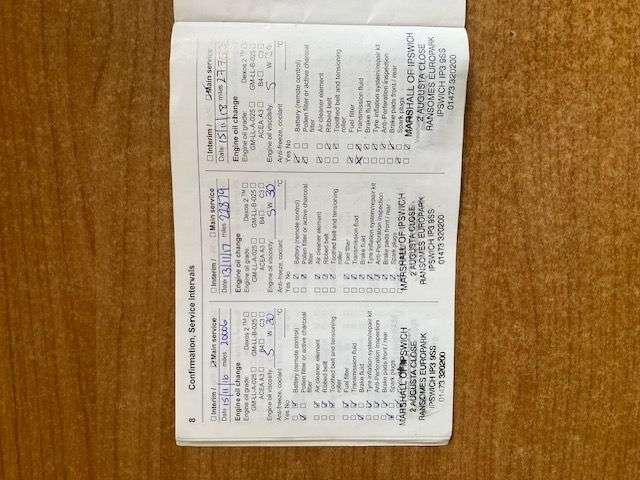 8 Confirmation, Service Intervals
Interim / Main service
Date 15/11/16 miles 20006
Engine oil change
Engine oil grade: Dexos 2 ™
GM-LL-A-025 GM-LL-B-025
ACEA A3 B4 C3
Engine oil viscosity 5 W 30
Anti-freeze, coolant °C
Yes No
Battery (remote control)
Pollen filter or active charcoal
filter
Air cleaner element
Ribbed belt
Toothed belt and tensioning
roller
Fuel filter
Transmission fluid
Brake fluid
Tyre inflation system/repair kit
Anti-Perforation inspection
Brake pads front / rear
Spark plugs
MARSHALL OF IPSWICH
2 AUGUSTA CLOSE
RANSOMES EUROPARK
IPSWICH IP3 9SS
01473 320200
Interim / Main service
Date 13/11/17 miles 23879
Engine oil change
Engine oil grade: Dexos 2 ™
GM-LL-A-025 GM-LL-B-025
ACEA A3 B4 C3
Engine oil viscosity 5 W 30
Anti-freeze, coolant °C
Yes No
Battery (remote control)
Pollen filter or active charcoal
filter
Air cleaner element
Ribbed belt
Toothed belt and tensioning
roller
Fuel filter
Transmission fluid
Brake fluid
Tyre inflation system/repair kit
Anti-Perforation inspection
Brake pads front / rear
Spark plugs
MARSHALL OF IPSWICH
2 AUGUSTA CLOSE
RANSOMES EUROPARK
IPSWICH IP3 9SS
01473 320200
Interim / Main service
Date 15/11/18 miles
Engine oil change
Engine oil grade: Dexos 2 ™
GM-LL-A-025 GM-LL-B-025
ACEA A3 B4 C3
Engine oil viscosity 5 W
Anti-freeze, coolant °C
Yes No
Battery (remote control)
Pollen filter or active charcoal
filter
Air cleaner element
Ribbed belt
Toothed belt and tensioning
roller
Fuel filter
Transmission fluid
Brake fluid
Tyre inflation system/repair kit
Anti-Perforation inspection
Brake pads front / rear
Spark plugs
MARSHALL OF IPSWICH
2 AUGUSTA CLOSE
RANSOMES EUROPARK
IPSWICH IP3 9SS
01473 320200